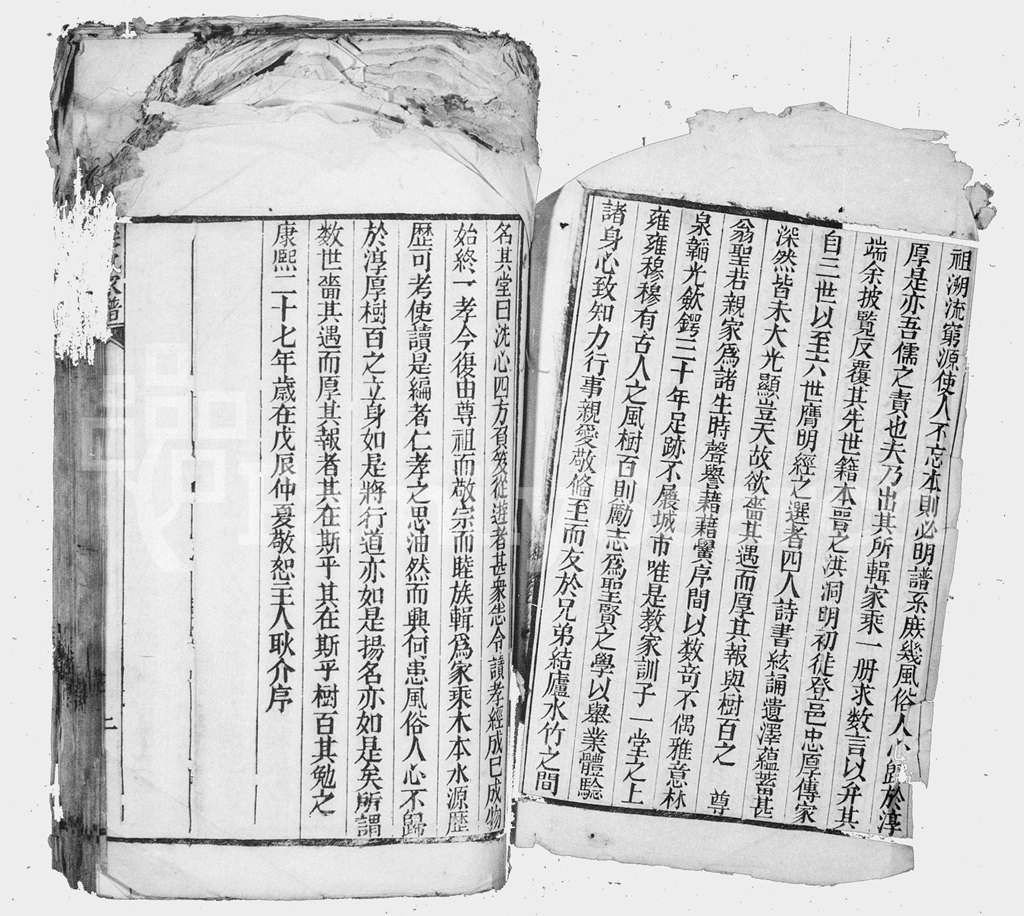 祖溯流窮源使人不忘本則必明譜系庶幾風俗人心歸於淳
厚是亦吾儒之責也夫乃出其所輯家乘一册求数言以弁其
端余披覧反覆其先世籍本晋之洪洞明初徙登邑忠厚傳家
自三世以至六世膺明經之選者四人詩書絃誦遺澤蘊蓄甚
深然皆未大光顯豈天故欲嗇其遇而厚其報與樹百之 尊
翁聖若親家爲諸生時聲譽藉藉黌序間以数竒不偶雅意林
泉韜光歛鍔二十年足跡不履城市唯是教家訓子一堂之上
雍雍穆穆有古人之風樹百則勵志爲聖賢之學以舉業體驗
諸身心致知力行事親愛敬俻至而友於兄弟結廬水竹之間
名其堂曰洗心四方負笈從遊者甚衆怸令讀孝經成巳成物
始終一孝今復由尊祖而敬宗而睦族輯爲家乘木本水源歷
歷可考使讀是編者仁孝之思油然而興何患風俗人心不歸
於淳厚樹百之立身如是將行道亦如是揚名亦如是矣所謂
数世嗇其遇而厚其報者其在斯乎其在斯乎樹百其勉之
康熙二十七年歳在戊辰仲夏敬恕主人耿介序
家譜
二